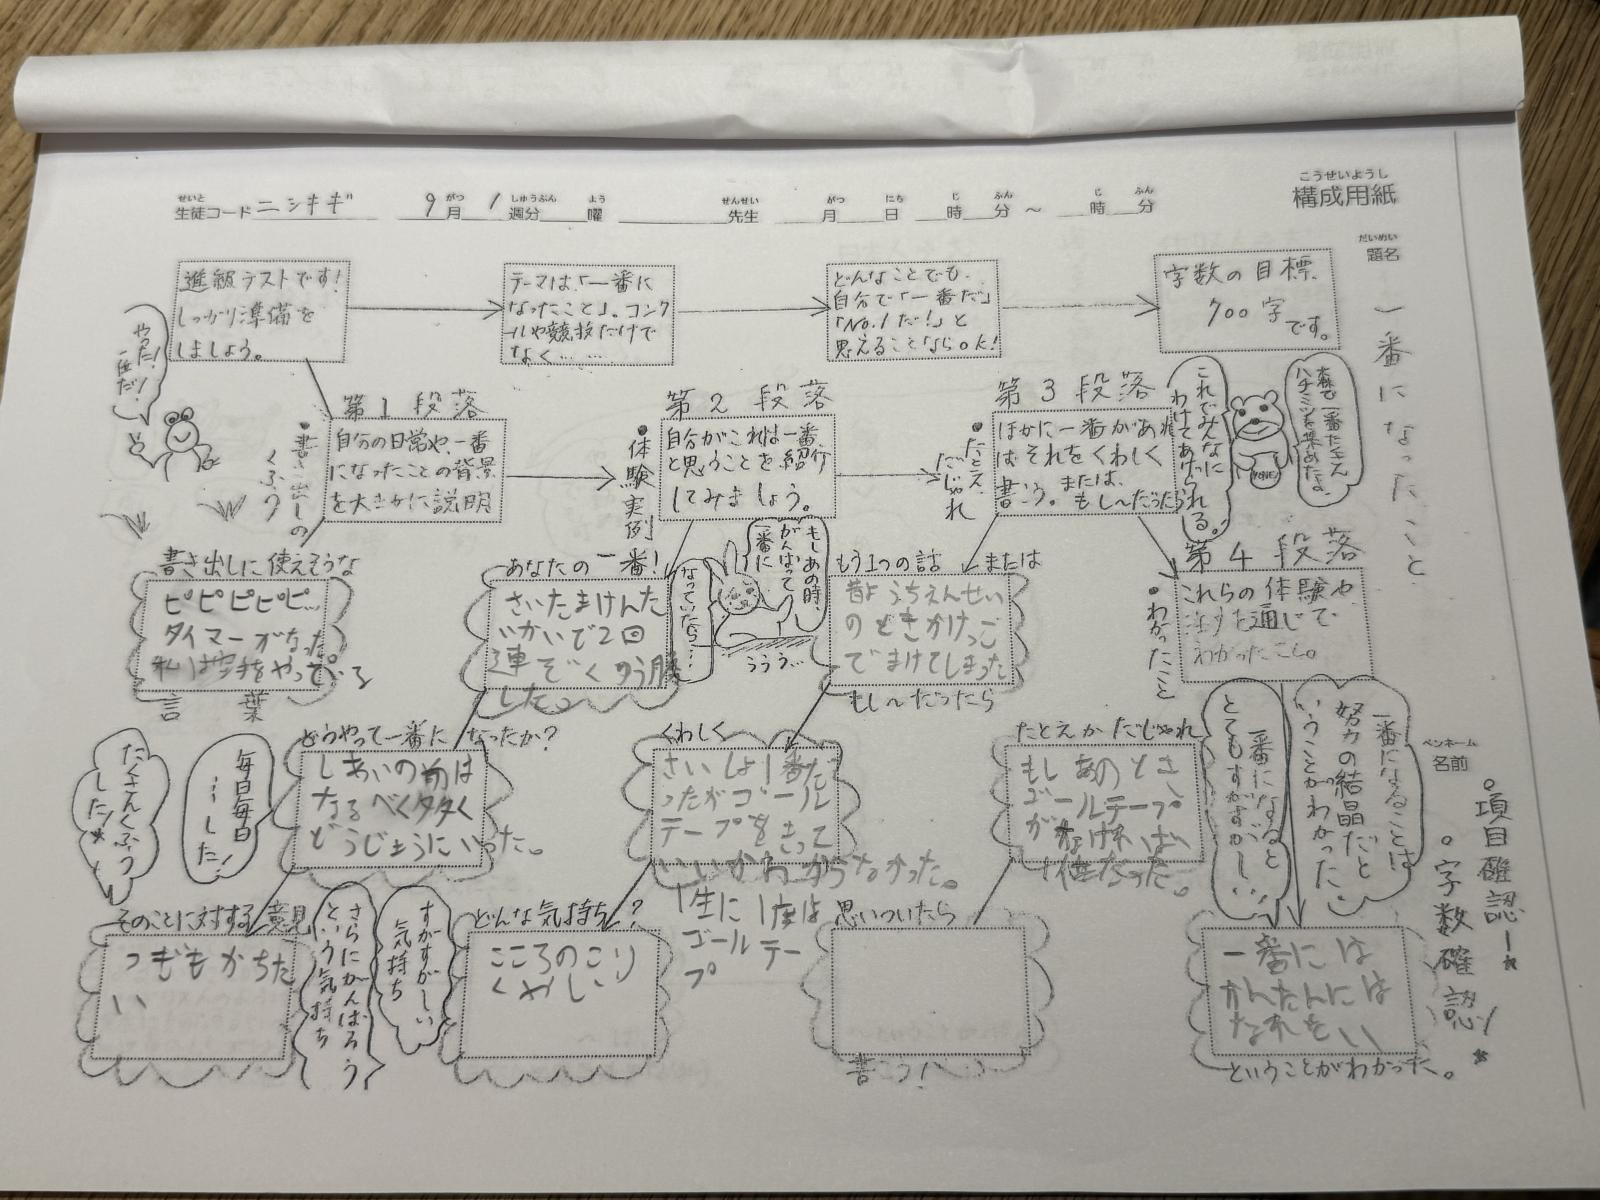 こうせいようし
構成用紙
せいと
生徒コード ニシキギ 9 がつ 月 1 しゅうぶん 週分 よう 曜 せんせい 先生 がつ 月 にち 日 じ 時 ふん 分 ～ じ 時 ふん 分
だいめい
題名
一番になったこと
進級テストです！
しっかり準備を
しましょう。
テーマは、「一番に
なったこと」。コンク
ールや競技だけで
なく……
どんなことでも、
自分で「一番だ」
「No.1だ！」と
思えることならOK！
字数の目標、
700字
です。
やった！
一番だ！
第1段落
自分の日常や、一番
になったことの背景
を大まかに説明
・書き出しの
くふう
第2段落
自分がこれは一番、
と思うことを紹介
してみましょう。
・体験実例
第3段落
ほかに一番があれ
ば それをくわしく
書こう。または、
もし～だったら
・たとえ
だじゃれ
これでみんなに
わけてあげられる。
森で一番たくさん
ハチミツを集めたよ。
HONEY
第4段落
これらの体験や
注すた通じて、
わかったこと。
・わかったこと
書き出しに使えそうな
ピピピピピ…
タイマーがなった。
私は空手をやっている
言葉
あなたの一番！
さいたまけんた
いかいで2回
連ぞくのう勝
した。
もしあの時、
がんばって
一番に
なっていたら…
ううう…
もう1つの話 または
昔ようちえんせい
のときかけっこ
でまけてしまった
もし～だったら
どうやって一番になったか？
しあいの前は
なるべく多く
どうじょうにいった。
毎日毎日
…した！
たくさんくふう
した！
くわしく
さいしょ1番だ
ったがゴール
テープをきって
いいかわからなかった。
1生に1度は
ゴールテー
プ
たとえかだじゃれ
もしあのとき
ゴールテープ
がなければ
1位だった。
一番になると
とてもすがすがしい
一番になることは
努力の結晶だと
いうことがわかった
そのことに対する意見
つぎもかちた
い
さらにがんばろう
という気持ち
すがすがしい
気持ち
どんな気持ち？
こころのこり
くやしい
思いついたら
書こう！
一番には
かんたんには
なれない
ということがわかった。
ペンネーム
名前
・項目確認！
・字数確認！